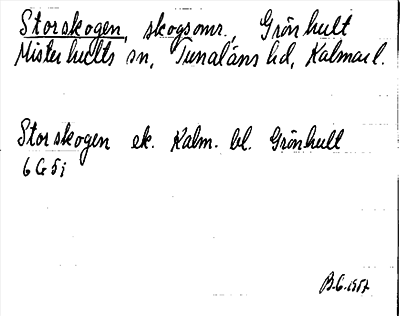 Storskogen, skogsomr., Grönhult
Misterhults sn, Tunaläns hd, Kalmar l.
Storskogen ek. Kalm. bl. Grönhult
6G5i
B.G. 1957